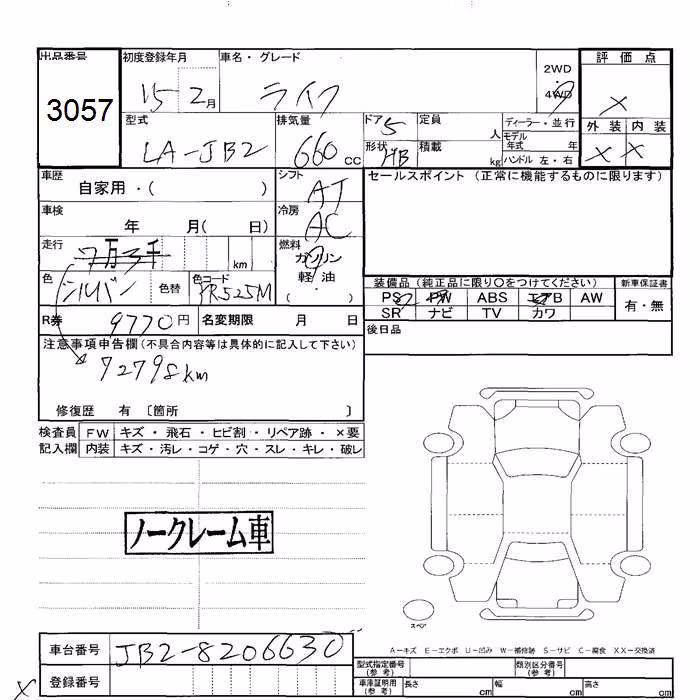 出品番号 初度登録年月 車名・グレード 評価点
3057 15 2月 ライフ 2WD 4WD ×
型式 排気量 ドア 定員 ディーラー・並行 外装 内装
LA-JB2 660cc 5 人 モデル年式 年 × ×
形状 HB 積載 kg ハンドル 左・右
車歴 自家用・( ) シフト AT セールスポイント (正常に機能するものに限ります)
車検 年 月( 日) 冷房 AC
走行 7万3千 km 燃料 ガソリン
色 シルバー 色替 色コード YR525M 軽油・( )
装備品 (純正品に限り○をつけてください) 新車保証書
PS PW ABS エアB AW 有・無
SR ナビ TV カワ
R券 9770円 名変期限 月 日 後日品
注意事項申告欄(不具合内容等は具体的に記入して下さい)
72798km
修復歴 有 〔箇所 〕
検査員 FW キズ・飛石・ヒビ割・リペア跡・×要
記入欄 内装 キズ・汚レ・コゲ・穴・スレ・キレ・破レ
ノークレーム車
スペア
A-キズ E-エクボ U-凹み W-補修跡 S-サビ C-腐食 XX-交換済
車台番号 JB2-8206630
型式指定番号(参考) 類別区分番号(参考)
× 登録番号 車庫証明用(参考) 長さ cm 幅 cm 高さ cm